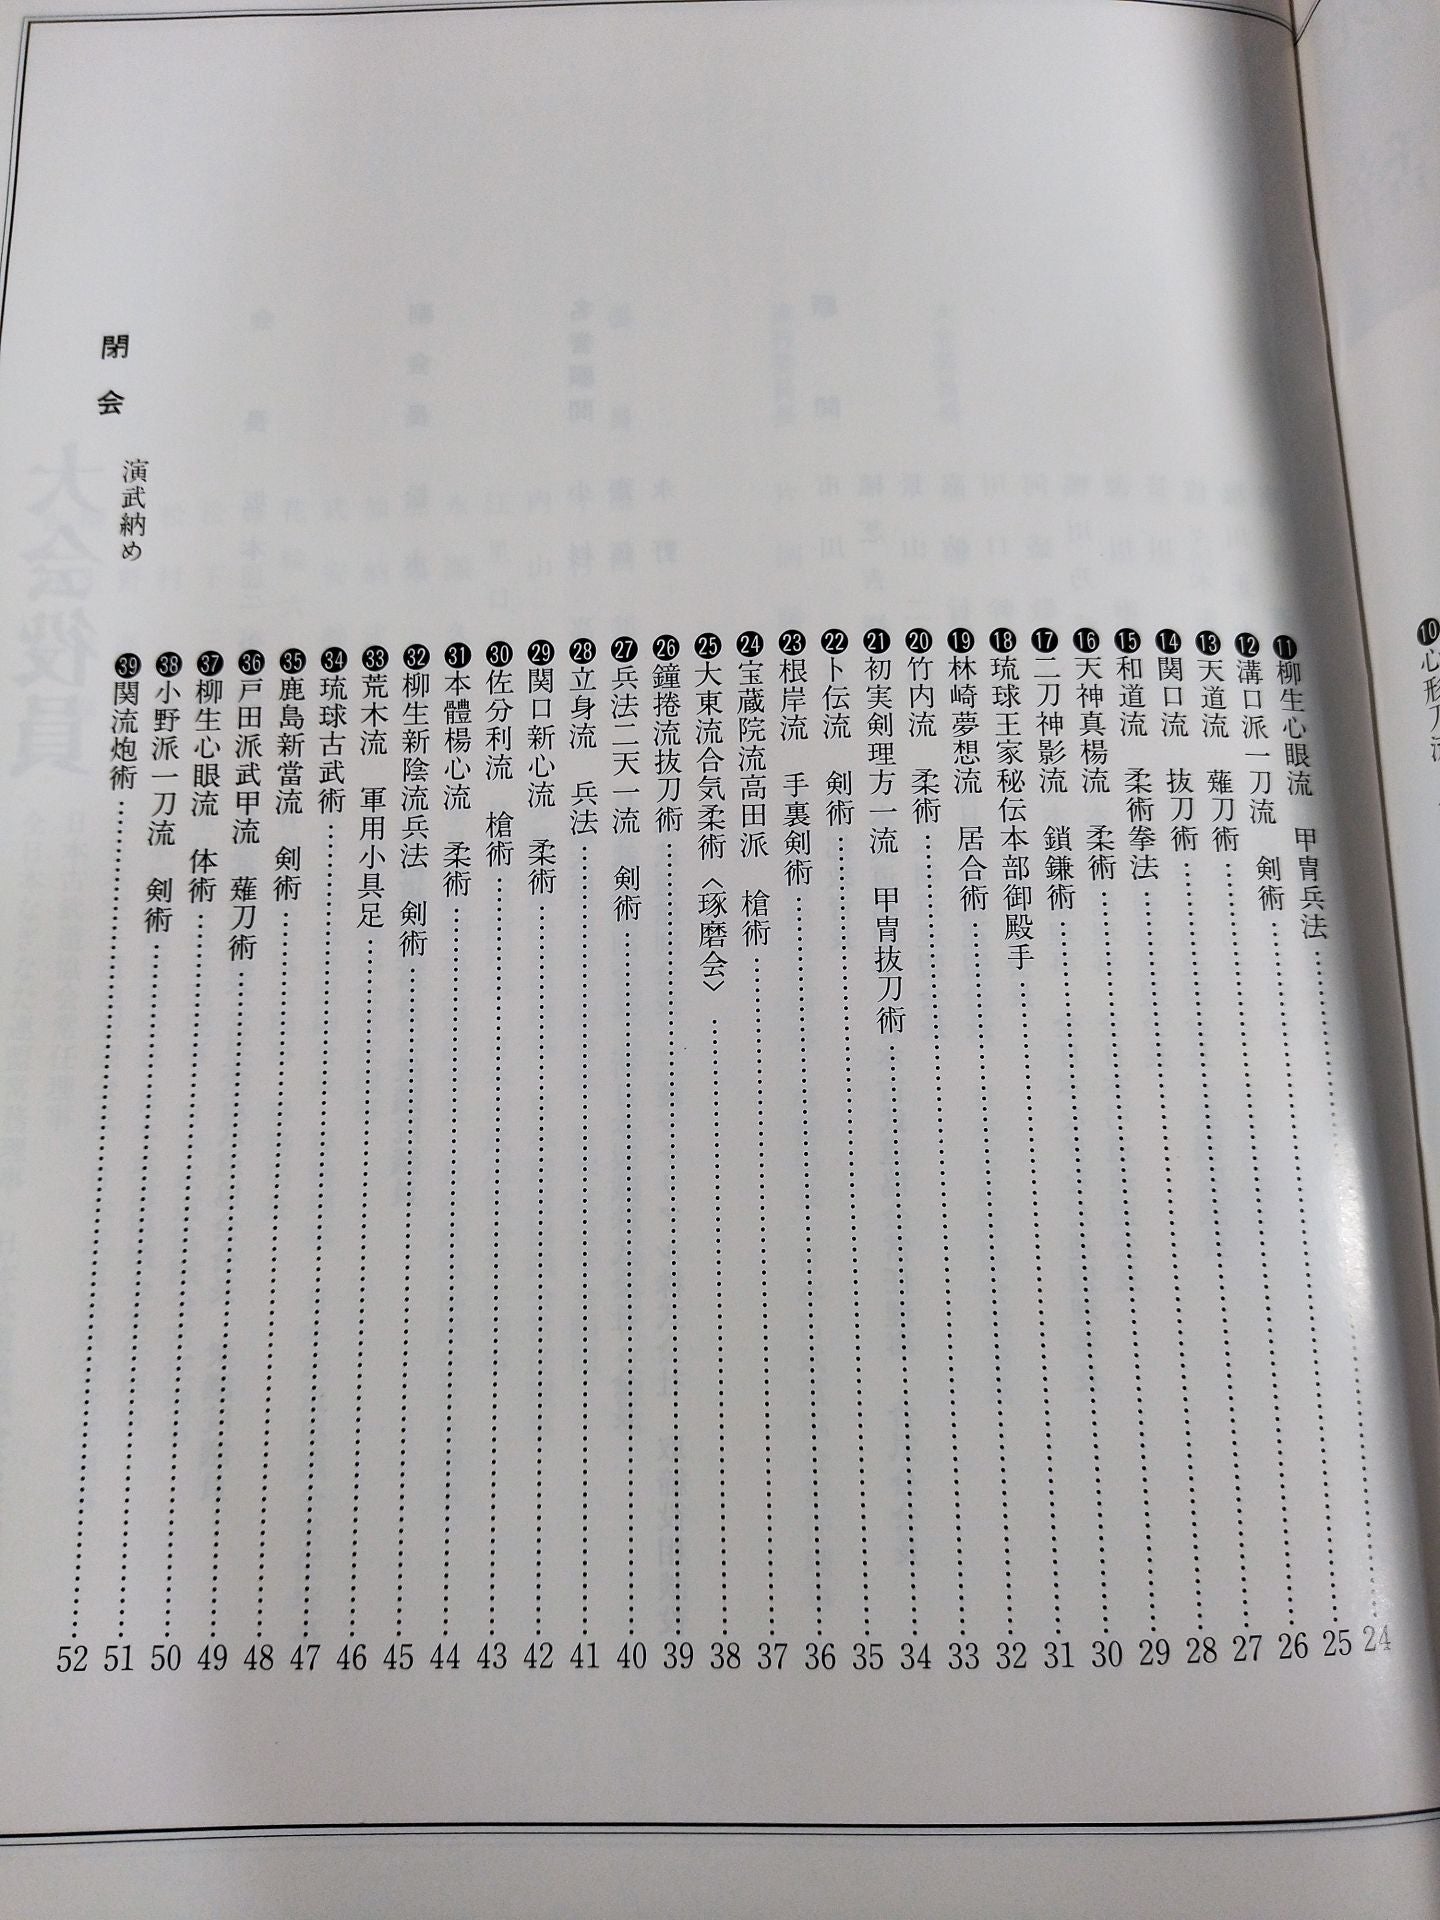 ⓫柳生心眼流　甲冑兵法……24
⓬溝口派一刀流　剣術……25
⓭天道流　薙刀術……26
⓮関口流　抜刀術……27
⓯和道流　柔術拳法……28
⓰天神真楊流　柔術……29
⓱二刀神影流　鎖鎌術……30
⓲琉球王家秘伝本部御殿手……31
⓳林崎夢想流　居合術……32
⓴竹内流　柔術……33
㉑初実剣理方一流　甲冑抜刀術……34
㉒卜伝流　剣術……35
㉓根岸流　手裏剣術……36
㉔宝蔵院流高田派　槍術……37
㉕大東流合気柔術〈琢磨会〉……38
㉖鐘捲流抜刀術……39
㉗兵法二天一流　剣術……40
㉘立身流　兵法……41
㉙関口新心流　柔術……42
㉚佐分利流　槍術……43
㉛本體楊心流　柔術……44
㉜柳生新陰流兵法　剣術……45
㉝荒木流　軍用小具足……46
㉞琉球古武術……47
㉟鹿島新當流　剣術……48
㊱戸田派武甲流　薙刀術……49
㊲柳生心眼流　体術……50
㊳小野派一刀流　剣術……51
演武納め
㊴関流炮術……52
閉会